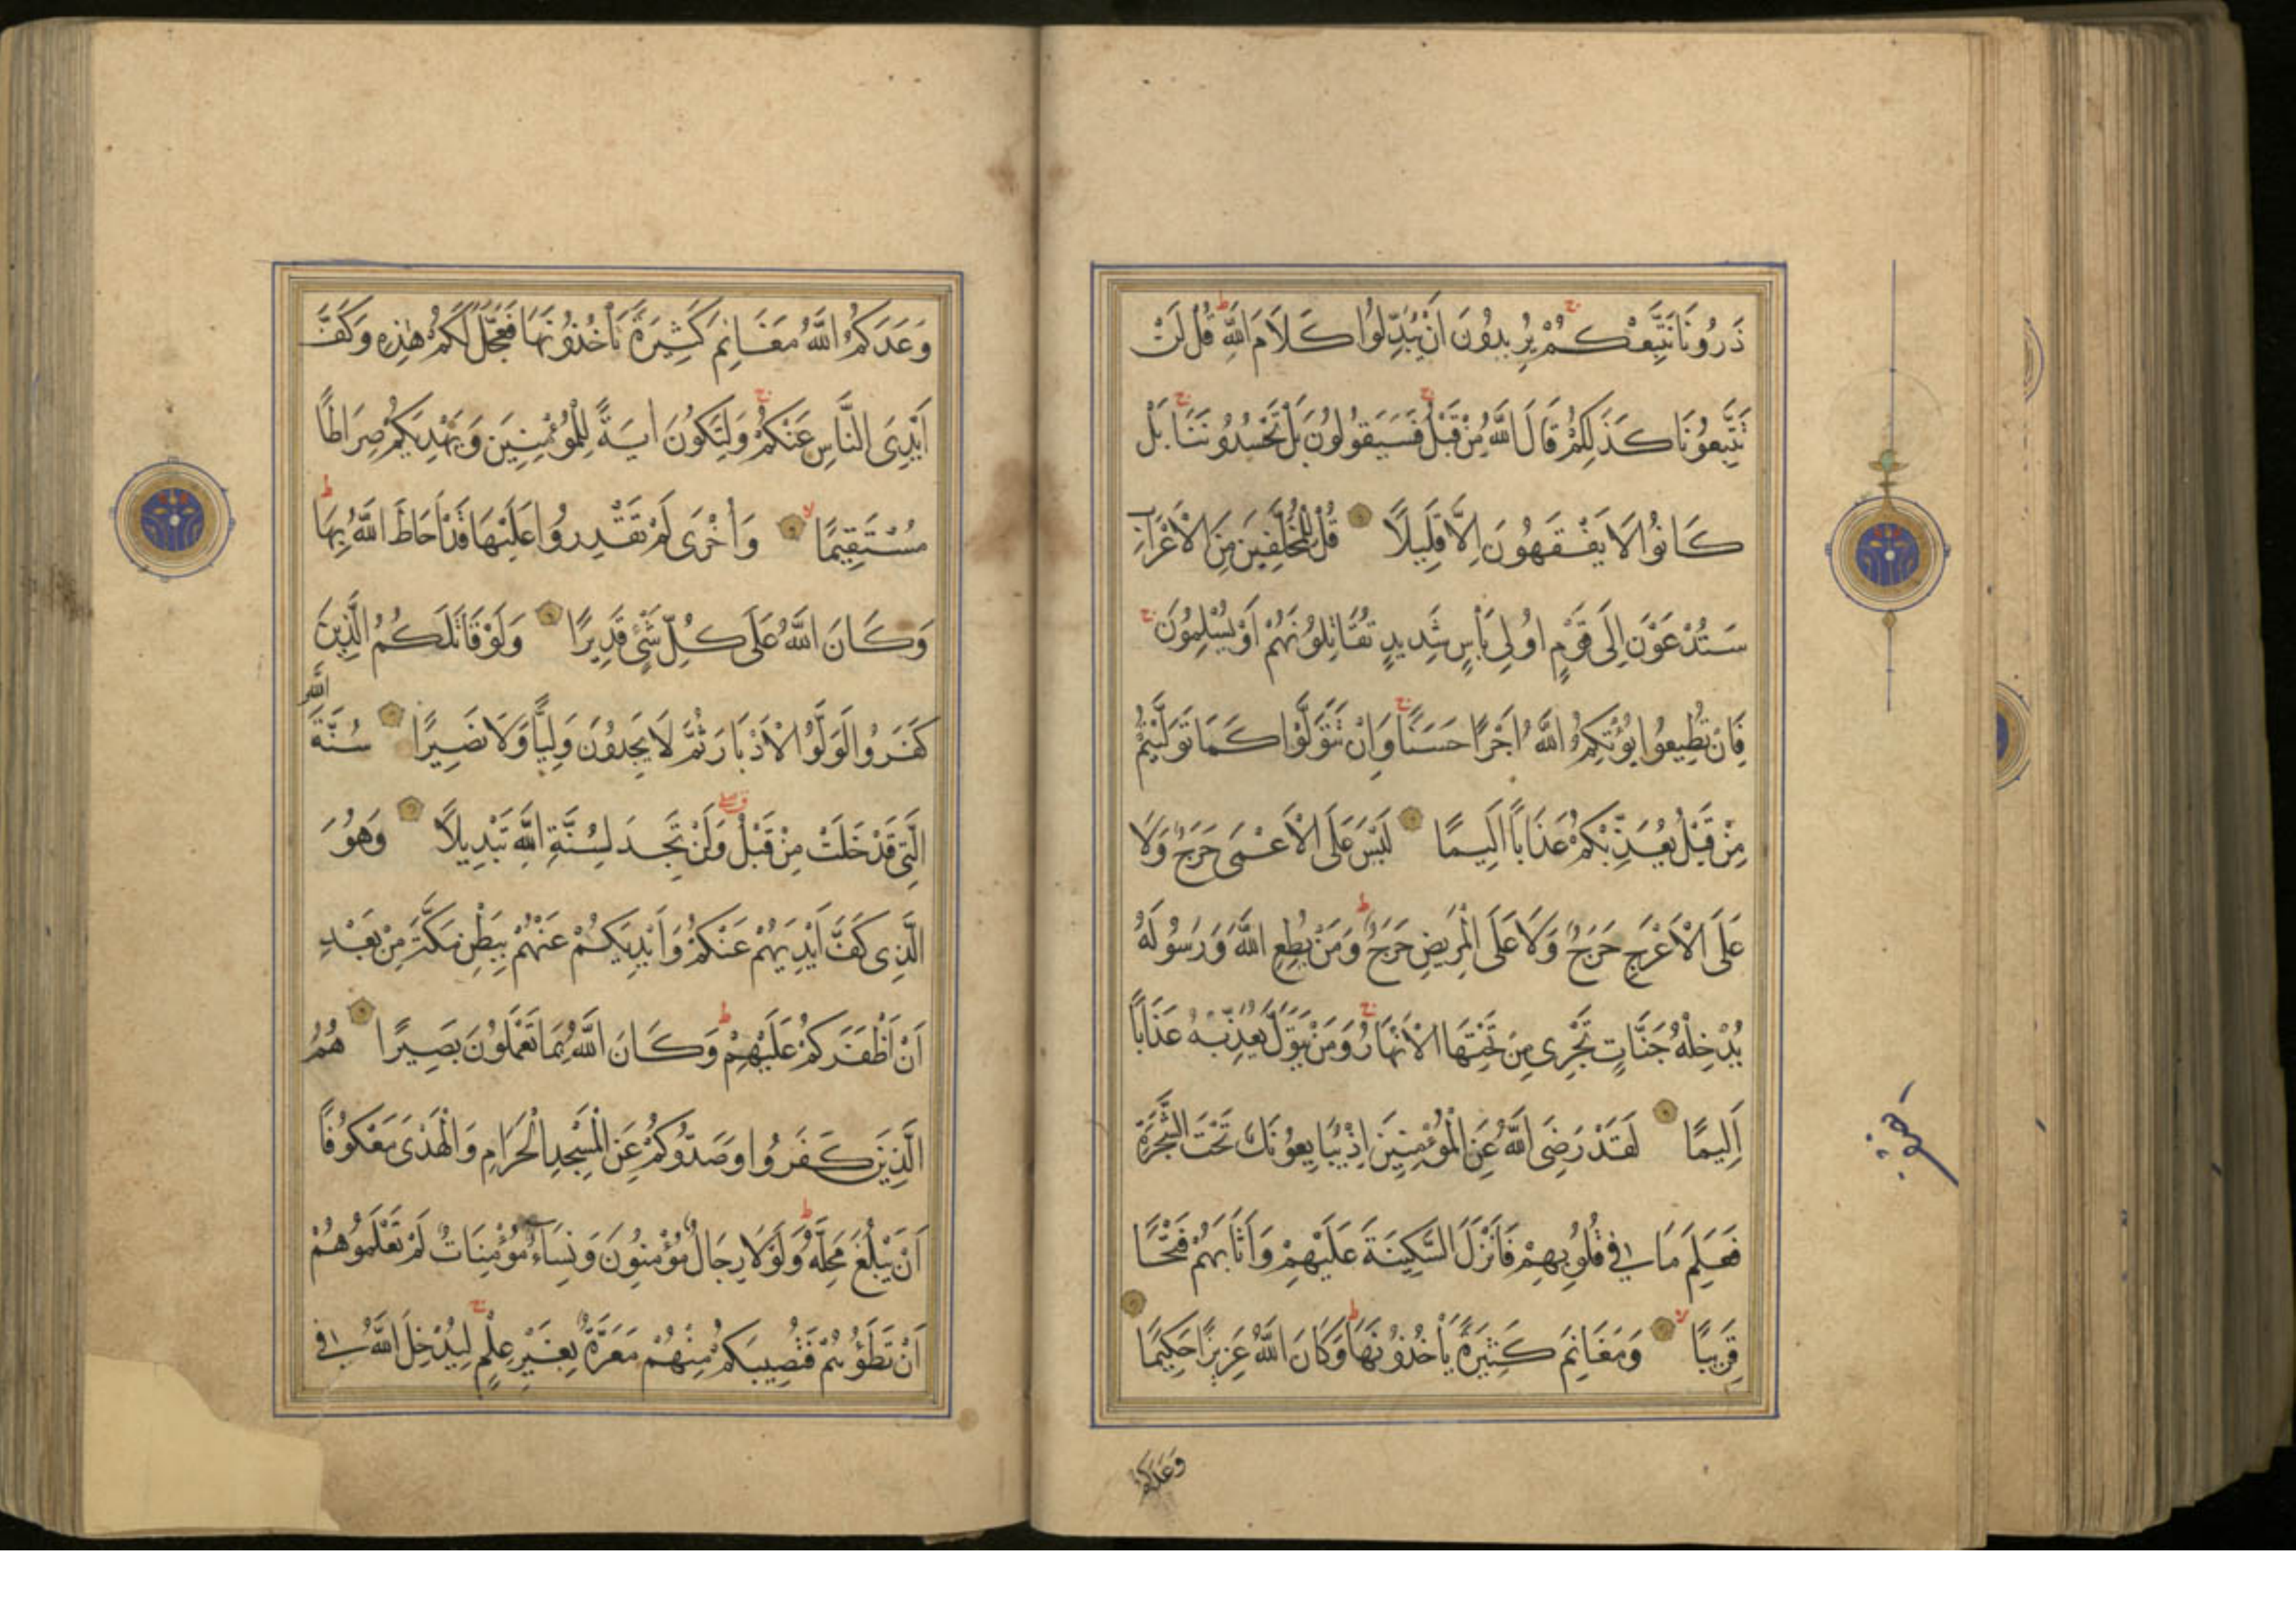 ذَرُونَا نَتَّبِعْكُمْ يُرِيدُونَ اَنْ يُبَدِّلُوا كَلَامَ اللّٰهِ قُلْ لَنْ
تَتَّبِعُونَا كَذٰلِكُمْ قَالَ اللّٰهُ مِنْ قَبْلُ فَسَيَقُولُونَ بَلْ تَحْسُدُونَنَا بَلْ
كَانُوا لَا يَفْقَهُونَ اِلَّا قَلِيلًا قُلْ لِلْمُخَلَّفِينَ مِنَ الْاَعْرَابِ
سَتُدْعَوْنَ اِلَى قَوْمٍ اُولِى بَأْسٍ شَدِيدٍ تُقَاتِلُونَهُمْ اَوْ يُسْلِمُونَ
فَاِنْ تُطِيعُوا يُؤْتِكُمُ اللّٰهُ اَجْرًا حَسَنًا وَاِنْ تَتَوَلَّوْا كَمَا تَوَلَّيْتُمْ
مِنْ قَبْلُ يُعَذِّبْكُمْ عَذَابًا اَلِيمًا لَيْسَ عَلَى الْاَعْمَى حَرَجٌ وَلَا
عَلَى الْاَعْرَجِ حَرَجٌ وَلَا عَلَى الْمَرِيضِ حَرَجٌ وَمَنْ يُطِعِ اللّٰهَ وَرَسُولَهُ
يُدْخِلْهُ جَنَّاتٍ تَجْرِى مِنْ تَحْتِهَا الْاَنْهَارُ وَمَنْ يَتَوَلَّ يُعَذِّبْهُ عَذَابًا
اَلِيمًا لَقَدْ رَضِىَ اللّٰهُ عَنِ الْمُؤْمِنِينَ اِذْ يُبَايِعُونَكَ تَحْتَ الشَّجَرَةِ
فَعَلِمَ مَا فِى قُلُوبِهِمْ فَاَنْزَلَ السَّكِينَةَ عَلَيْهِمْ وَاَثَابَهُمْ فَتْحًا
قَرِيبًا وَمَغَانِمَ كَثِيرَةً يَأْخُذُونَهَا وَكَانَ اللّٰهُ عَزِيزًا حَكِيمًا
وَعَدَكُمُ
وَعَدَكُمُ اللّٰهُ مَغَانِمَ كَثِيرَةً تَأْخُذُونَهَا فَعَجَّلَ لَكُمْ هٰذِهِ وَكَفَّ
اَيْدِىَ النَّاسِ عَنْكُمْ وَلِتَكُونَ اٰيَةً لِلْمُؤْمِنِينَ وَيَهْدِيَكُمْ صِرَاطًا
مُسْتَقِيمًا وَاُخْرَى لَمْ تَقْدِرُوا عَلَيْهَا قَدْ اَحَاطَ اللّٰهُ بِهَا
وَكَانَ اللّٰهُ عَلَى كُلِّ شَىْءٍ قَدِيرًا وَلَوْ قَاتَلَكُمُ الَّذِينَ
كَفَرُوا لَوَلَّوُا الْاَدْبَارَ ثُمَّ لَا يَجِدُونَ وَلِيًّا وَلَا نَصِيرًا سُنَّةَ اللّٰهِ
الَّتِى قَدْ خَلَتْ مِنْ قَبْلُ وَلَنْ تَجِدَ لِسُنَّةِ اللّٰهِ تَبْدِيلًا وَهُوَ
الَّذِى كَفَّ اَيْدِيَهُمْ عَنْكُمْ وَاَيْدِيَكُمْ عَنْهُمْ بِبَطْنِ مَكَّةَ مِنْ بَعْدِ
اَنْ اَظْفَرَكُمْ عَلَيْهِمْ وَكَانَ اللّٰهُ بِمَا تَعْمَلُونَ بَصِيرًا هُمُ
الَّذِينَ كَفَرُوا وَصَدُّوكُمْ عَنِ الْمَسْجِدِ الْحَرَامِ وَالْهَدْىَ مَعْكُوفًا
اَنْ يَبْلُغَ مَحِلَّهُ وَلَوْلَا رِجَالٌ مُؤْمِنُونَ وَنِسَاءٌ مُؤْمِنَاتٌ لَمْ تَعْلَمُوهُمْ
اَنْ تَطَؤُهُمْ فَتُصِيبَكُمْ مِنْهُمْ مَعَرَّةٌ بِغَيْرِ عِلْمٍ لِيُدْخِلَ اللّٰهُ فِى